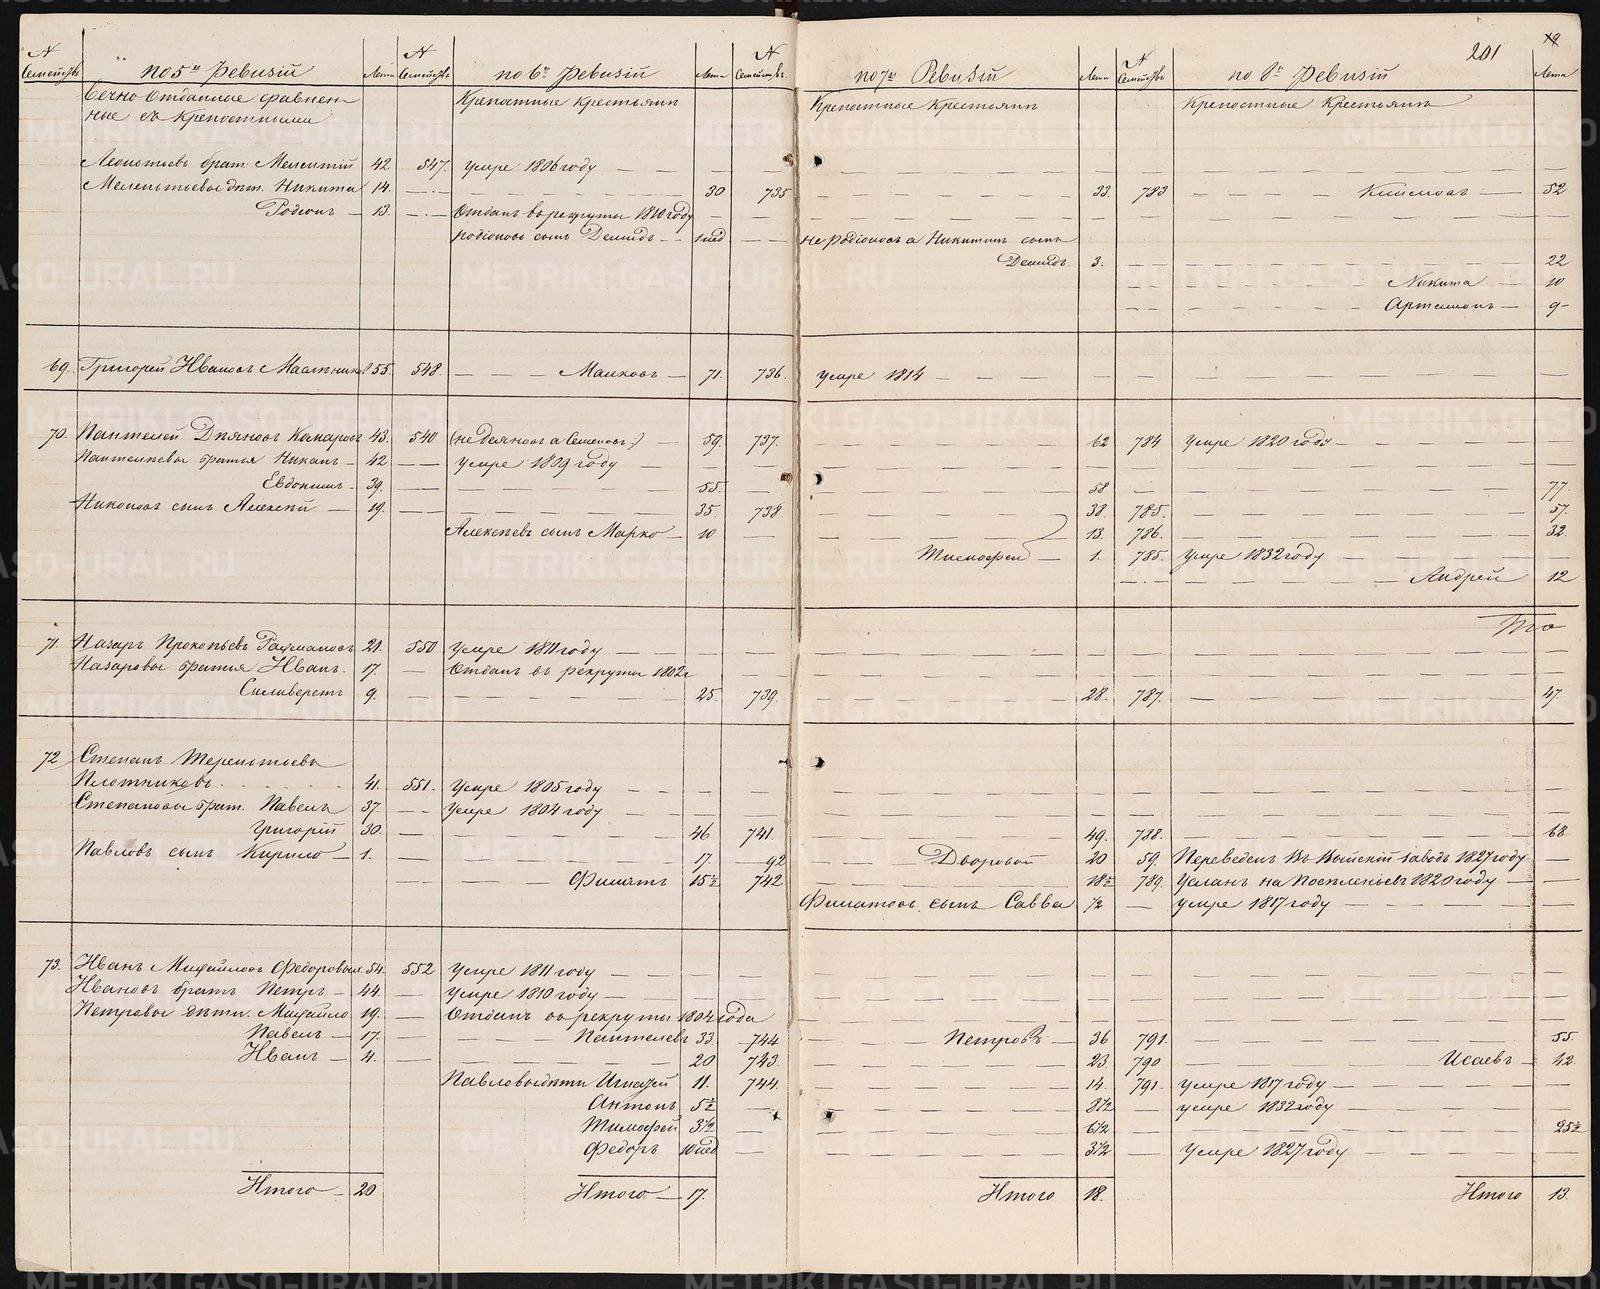 201
№ Семействъ по 5й Ревизiи Лета № Семействъ по 6й Ревизiи Лета № Семействъ по 7й Ревизiи Лета № Семействъ по 8й Ревизiи Лета
Вечно Отданные сравнен- Крепостные крестьянъ Крепостные Крестьянъ Крепостные Крестьянъ
ные съ крепостными
Леонтьевъ брат. Мелентiй 42 547. умре 1806 году
Мелентьевы дет. Никита 14. 30 735 33. 783 52
Родiонъ 13. Отданъ въ рекруты 1810 году
родiоновъ сынъ Демидъ 1 нед не родiоновъ а Никитинъ сынъ
Демидъ. 3. 22
Никита 10
Артамонъ 9
69. Григорей Ивановъ 55. 548 71. 736. умре 1814
70. Пантелей 43. 540 (не а Семеновъ) 59. 737. 62 784 умре 1820 году
Пантелеевы братья 42 умре 1809 году
Евдокимъ 39. 55. 58 77.
сынъ Алексей 19. 35 738 38. 785. 57.
Алексеевъ сынъ Марко 10 13. 786. 32.
Тимофей 1. 785. умре 1832 году
Андрей 12
71. Назаръ Прокопьевъ 21. 550 умре 1811 году
Назаровы братья Иванъ. 17. Отданъ въ рекруты 1802
Силиверстъ 9. 25. 739. 28. 787. 47.
72. Степанъ Терентьевъ
Плотниковъ 41. 551. умре 1805 году
Степановы брат. Павелъ 37 умре 1804 году
Григорiй 30. 46 741. 49. 788. 68
Павловъ сынъ Кирило 1. 17. 92 Дворовой 20 59. Переведенъ Въ Выйскiй заводъ 1827 году
Филатъ 15½ 742 18½ 789. Усланъ на Поселеньевъ 1820 году
Филатовъ сынъ Савва ½ умре 1817 году
73. Иванъ Михайловъ 54. 552 умре 1811 году
Ивановъ братъ Петръ 44. умре 1810 году
Петровы дети. Михайло 19. Отданъ въ рекруты 1804 года
Павелъ 17. Пантелеевъ 33. 744 Петровъ 36 791. 55.
Иванъ 4. 20 743. 23. 790 Исаевъ 42.
Павловы дети Игнатей 11. 744. 14. 791. умре 1817 году
Антонъ 5½ 8½ умре 1832 году
Тимофей 3½ 6½ 25½
Федоръ 10 нед 3½ умре 1827 году
Итого 20 Итого 17. Итого 18. Итого 13.
METRIKI.GASO-URAL.RU